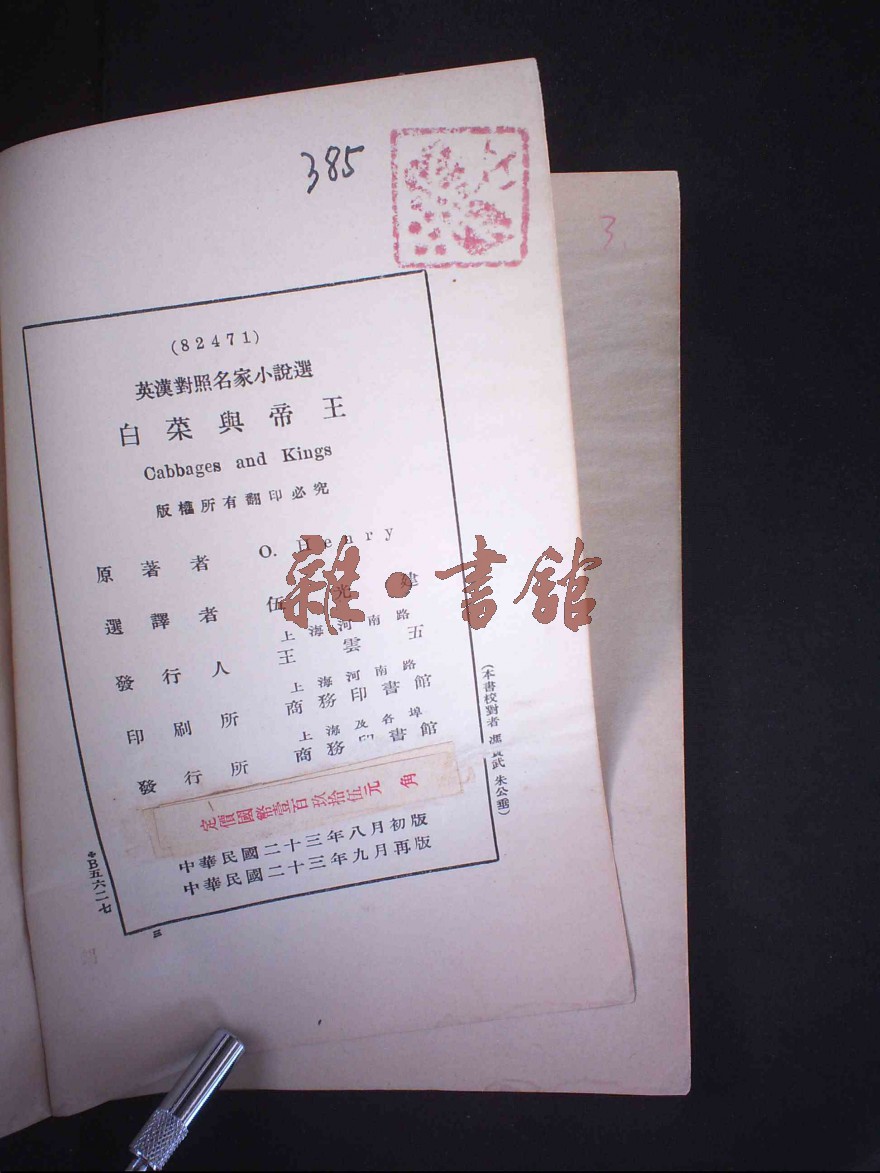 385
3.
(82471)
英漢對照名家小說選
白菜與帝王
Cabbages and Kings
版權所有翻印必究
原著者 O. Henry
選譯者 伍光建
上海河南路
發行人 王雲五
上海河南路
印刷所 商務印書館
上海及各埠
發行所 商務印書館
定價國幣壹百玖拾伍元 角
中華民國二十三年八月初版
中華民國二十三年九月再版
(本書校對者 武 朱公垂)
B五六二七
三
雜·書館